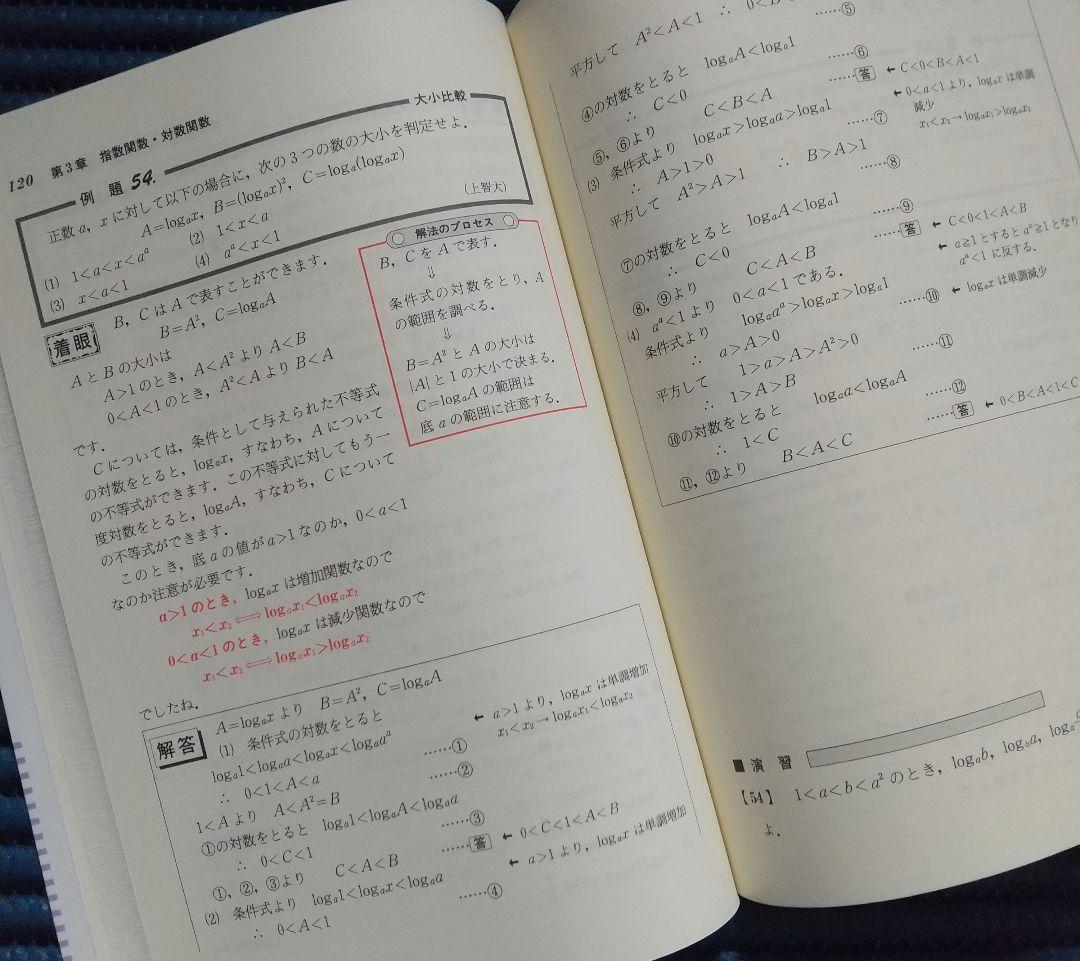 120 第3章 指数関数・対数関数
例 題 54.
大小比較
正数 a, x に対して以下の場合に，次の3つの数の大小を判定せよ．
A=logₐx, B=(logₐx)², C=logₐ(logₐx)
(1) 1<a<x<aᵃ (2) 1<x<a
(3) x<a<1 (4) aᵃ<x<1
（上智大）
着眼
B, C は A で表すことができます．
B=A², C=logₐA
A と B の大小は
A>1のとき，A<A² より A<B
0<A<1のとき，A²<A より B<A
です．
C については，条件として与えられた不等式
の対数をとると，logₐx，すなわち，A について
の不等式ができます．この不等式に対してもう一
度対数をとると，logₐA，すなわち，C について
の不等式ができます．
このとき，底 a の値が a>1 なのか，0<a<1
なのか注意が必要です．
a>1 のとき，logₐx は増加関数なので
x₁<x₂ ⟺ logₐx₁<logₐx₂
0<a<1 のとき，logₐx は減少関数なので
x₁<x₂ ⟺ logₐx₁>logₐx₂
でしたね．
解法のプロセス
B, C を A で表す．
⇓
条件式の対数をとり，A
の範囲を調べる．
⇓
B=A² と A の大小は
|A| と 1 の大小で決まる．
C=logₐA の範囲は
底 a の範囲に注意する．
解答
A=logₐx より B=A², C=logₐA
(1) 条件式の対数をとると
logₐ1<logₐa<logₐx<logₐaᵃ
← a>1 より，logₐx は単調増加
x₁<x₂ → logₐx₁<logₐx₂
∴ 0<1<A<a ……①
1<A より A<A²=B ……②
①の対数をとると logₐ1<logₐA<logₐa
∴ 0<C<1 ……③
①，②，③より C<A<B ……答 ← 0<C<1<A<B
(2) 条件式より logₐ1<logₐx<logₐa ← a>1 より，logₐx は単調増加
∴ 0<A<1 ……④
平方して A²<A<1 ∴ 0<B ……⑤
④の対数をとると logₐA<logₐ1
∴ C<0 ……⑥
⑤，⑥より C<B<A ……答 ← C<0<B<A<1
(3) 条件式より logₐx>logₐa>logₐ1
← 0<a<1 より，logₐx は単調
減少
x₁<x₂→logₐx₁>logₐx₂
∴ A>1>0 ……⑦
平方して A²>A>1 ∴ B>A>1 ……⑧
⑦の対数をとると logₐA<logₐ1
∴ C<0 ……⑨
⑧，⑨より C<A<B ……答 ← C<0<1<A<B
(4) aᵃ<1 より 0<a<1 である．
← a≧1 とすると aᵃ≧1 となり
aᵃ<1 に反する．
条件式より logₐaᵃ>logₐx>logₐ1 ← logₐx は単調減少
∴ a>A>0 ……⑩
平方して 1>a>A>A²>0
∴ 1>A>B ……⑪
⑩の対数をとると logₐa<logₐA
∴ 1<C ……⑫
⑪，⑫より B<A<C ……答 ← 0<B<A<1<C
■ 演 習
【54】 1<a<b<a² のとき，logₐb, log_b a, logₐ
よ．